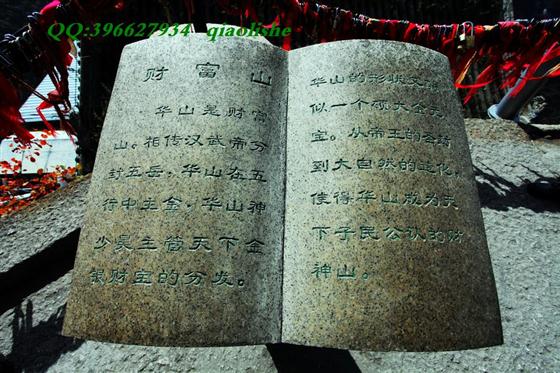 QQ:396627934 qiaolishe
财富山
华山是财富
山。相传汉武帝分
封五岳，华山在五
行中主金，华山神
少昊主管天下金
银财宝的分发。
华山的形状又
似一个硕大金元
宝。从帝王的
到大自然的造化，
使得华山成为天
下子民公认的财
神山。